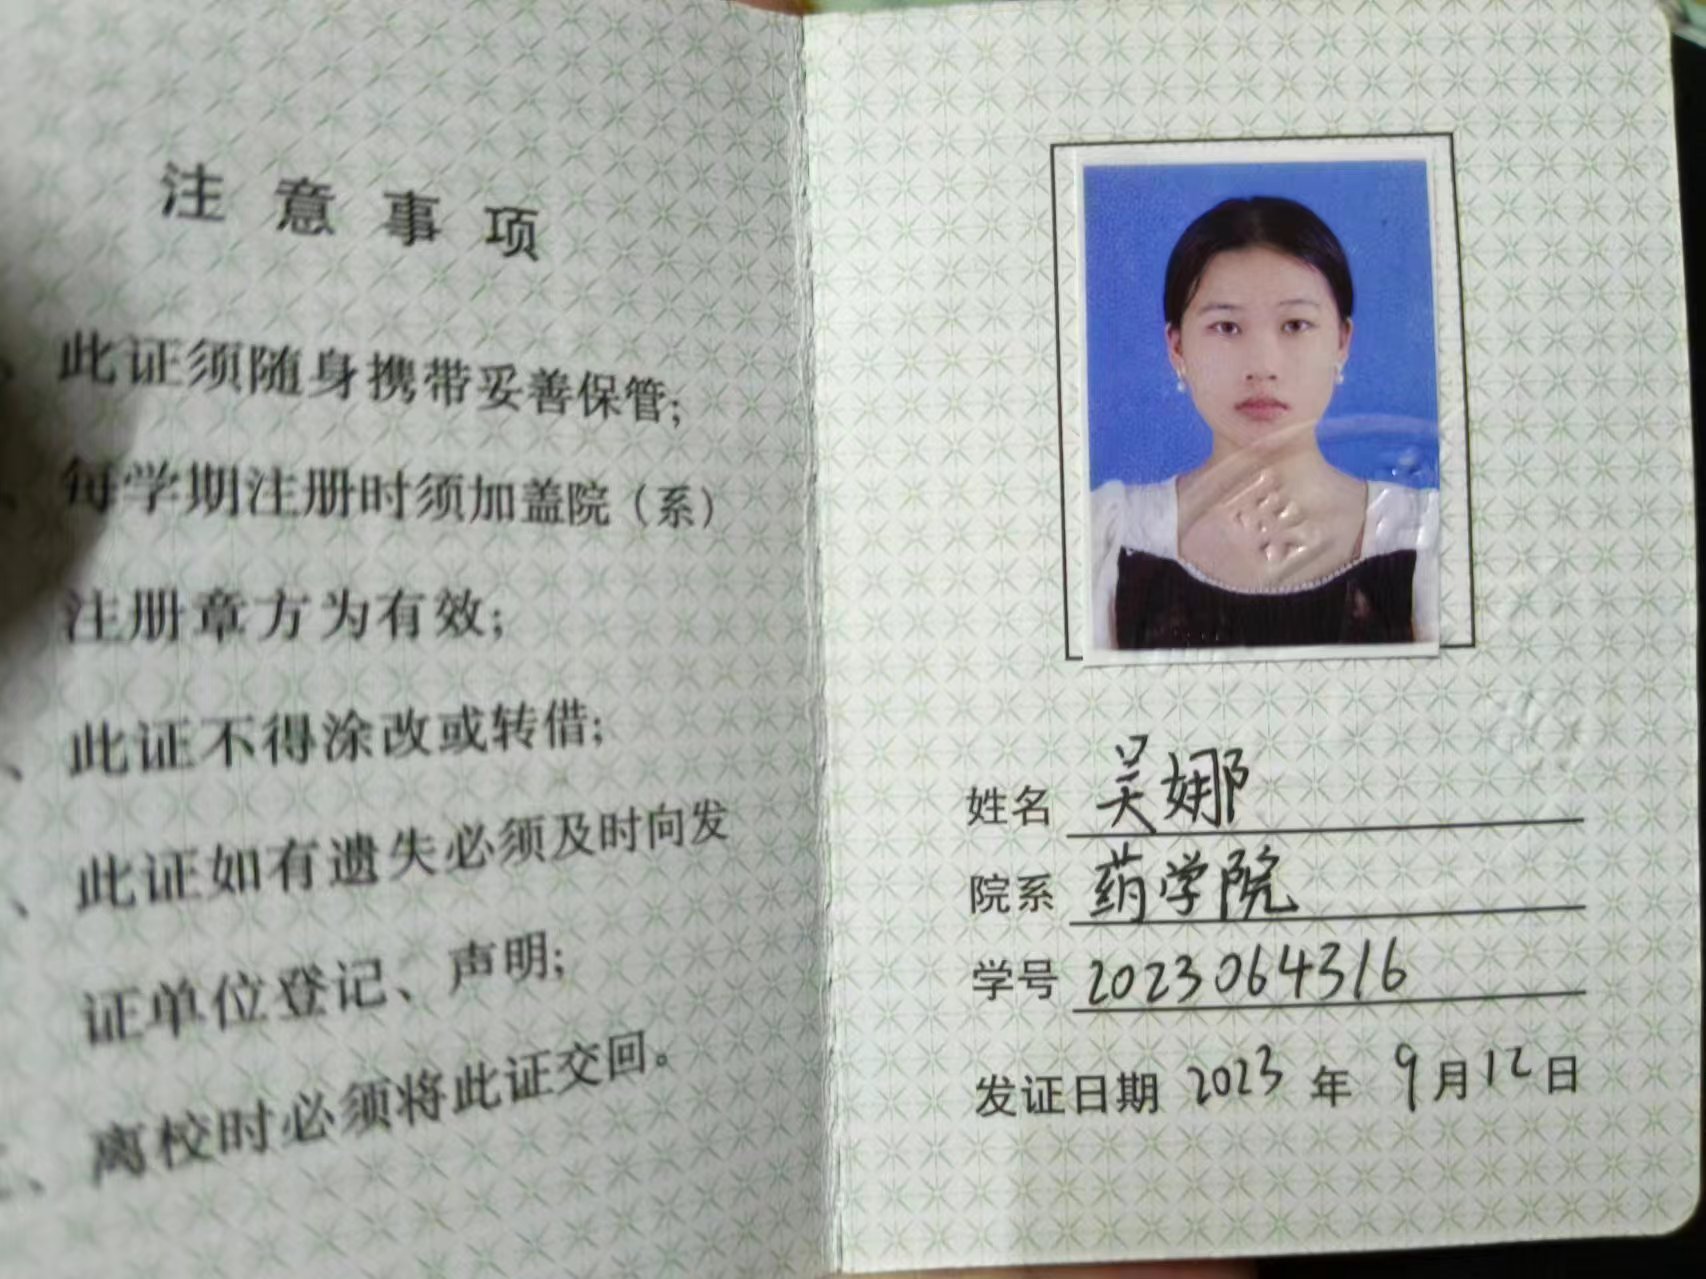 注意事项
、此证须随身携带妥善保管;
、每学期注册时须加盖院(系)
注册章方为有效;
、此证不得涂改或转借;
、此证如有遗失必须及时向发
证单位登记、声明;
、离校时必须将此证交回。
姓名 吴娜
院系 药学院
学号 2023064316
发证日期 2023 年 9 月 12 日